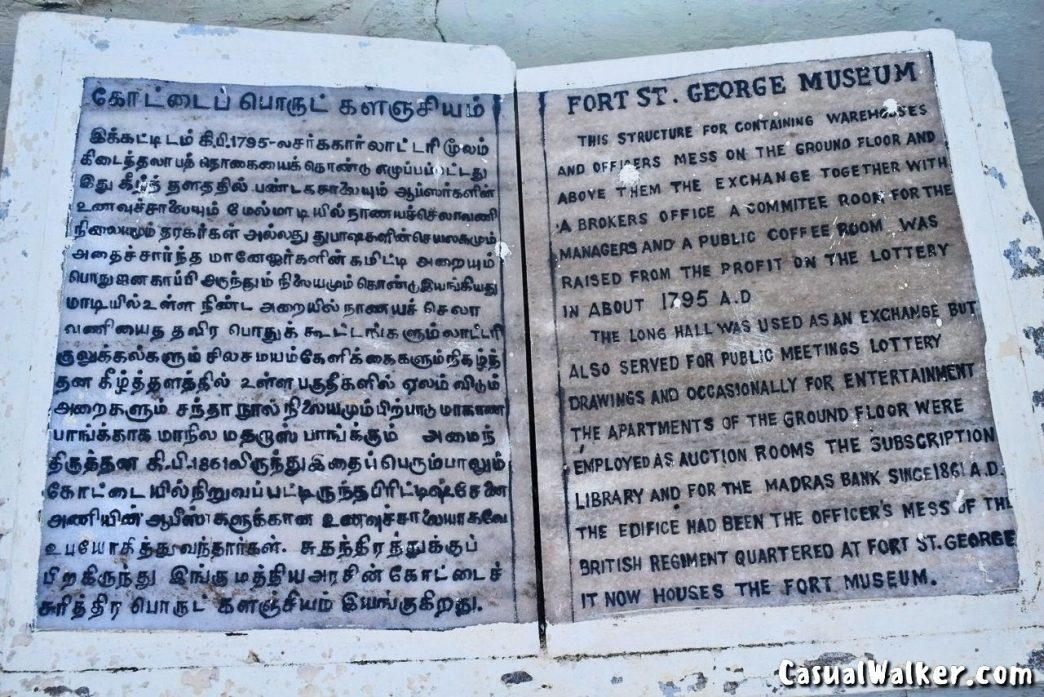 கோட்டைப் பொருட் களஞ்சியம்
இக்கட்டிடம் கி.பி.1795-லசர்க்கார் லாட்டரி மூலம்
கிடைத்தலாபத் தொகையைக் கொண்டு எழுப்பப்பட்டது
இது கீழ்த் தளத்தில் பண்டகசாலையும் ஆப்ஸர்களின்
உணவுச்சாலையும் மேல்மாடியில் நாணயச்செலாவணி
நிலையமும் தரகர்கள் அல்லது துபாஷகளின்செயலகமும்
அதைச் சார்ந்த மானேஜர்களின் கமிட்டி அறையும்
பொதுஜனகாப்பி அருந்தும் நிலையமும் கொண்டுஇயங்கியது
மாடியில் உள்ள நீண்ட அறையில் நாணயச் செலா
வணியைத தவிர பொதுக் கூட்டங்களும் லாட்டரி
குலுக்கல்களும் சிலசமயம்கேளிக்கைகளும்நிகழ்ந்
தன கீழ்த்தளத்தில் உள்ள பகுதிகளில் ஏலம் விடும்
அறைகளும் சந்தா நூல் நிலையமும் பிற்பாடு மாகாண
பாங்க்காக மாநில மதராஸ் பாங்க்கும் அமைந்
திருத்தன கி.பி.1861லிருந்துஇதைப் பெரும்பாலும்
கோட்டையில்நிறுவப்பட்டிருந்தபிரிட்டிஷ்சேனை
அணியின் ஆபீஸ்களுக்கான உணவுச்சாலையாகவே
உபயோகித்துவந்தார்கள். சுதந்திரத்துக்குப்
பிறகிருந்து இங்கு மத்திய அரசின் கோட்டைச்
சரித்திர பொருட களஞ்சியம் இயங்குகிறது.
FORT ST. GEORGE MUSEUM
THIS STRUCTURE FOR CONTAINING WAREHOUSES
AND OFFICERS MESS ON THE GROUND FLOOR AND
ABOVE THEM THE EXCHANGE TOGETHER WITH
A BROKERS OFFICE A COMMITEE ROOM FOR THE
MANAGERS AND A PUBLIC COFFEE ROOM WAS
RAISED FROM THE PROFIT ON THE LOTTERY
IN ABOUT 1795 A.D
THE LONG HALL WAS USED AS AN EXCHANGE BUT
ALSO SERVED FOR PUBLIC MEETINGS LOTTERY
DRAWINGS AND OCCASIONALLY FOR ENTERTAINMENT
THE APARTMENTS OF THE GROUND FLOOR WERE
EMPLOYED AS AUCTION ROOMS THE SUBSCRIPTION
LIBRARY AND FOR THE MADRAS BANK SINCE 1861 A.D.
THE EDIFICE HAD BEEN THE OFFICER'S MESS OF THE
BRITISH REGIMENT QUARTERED AT FORT ST. GEORGE
IT NOW HOUSES THE FORT MUSEUM.
CasualWalker.com